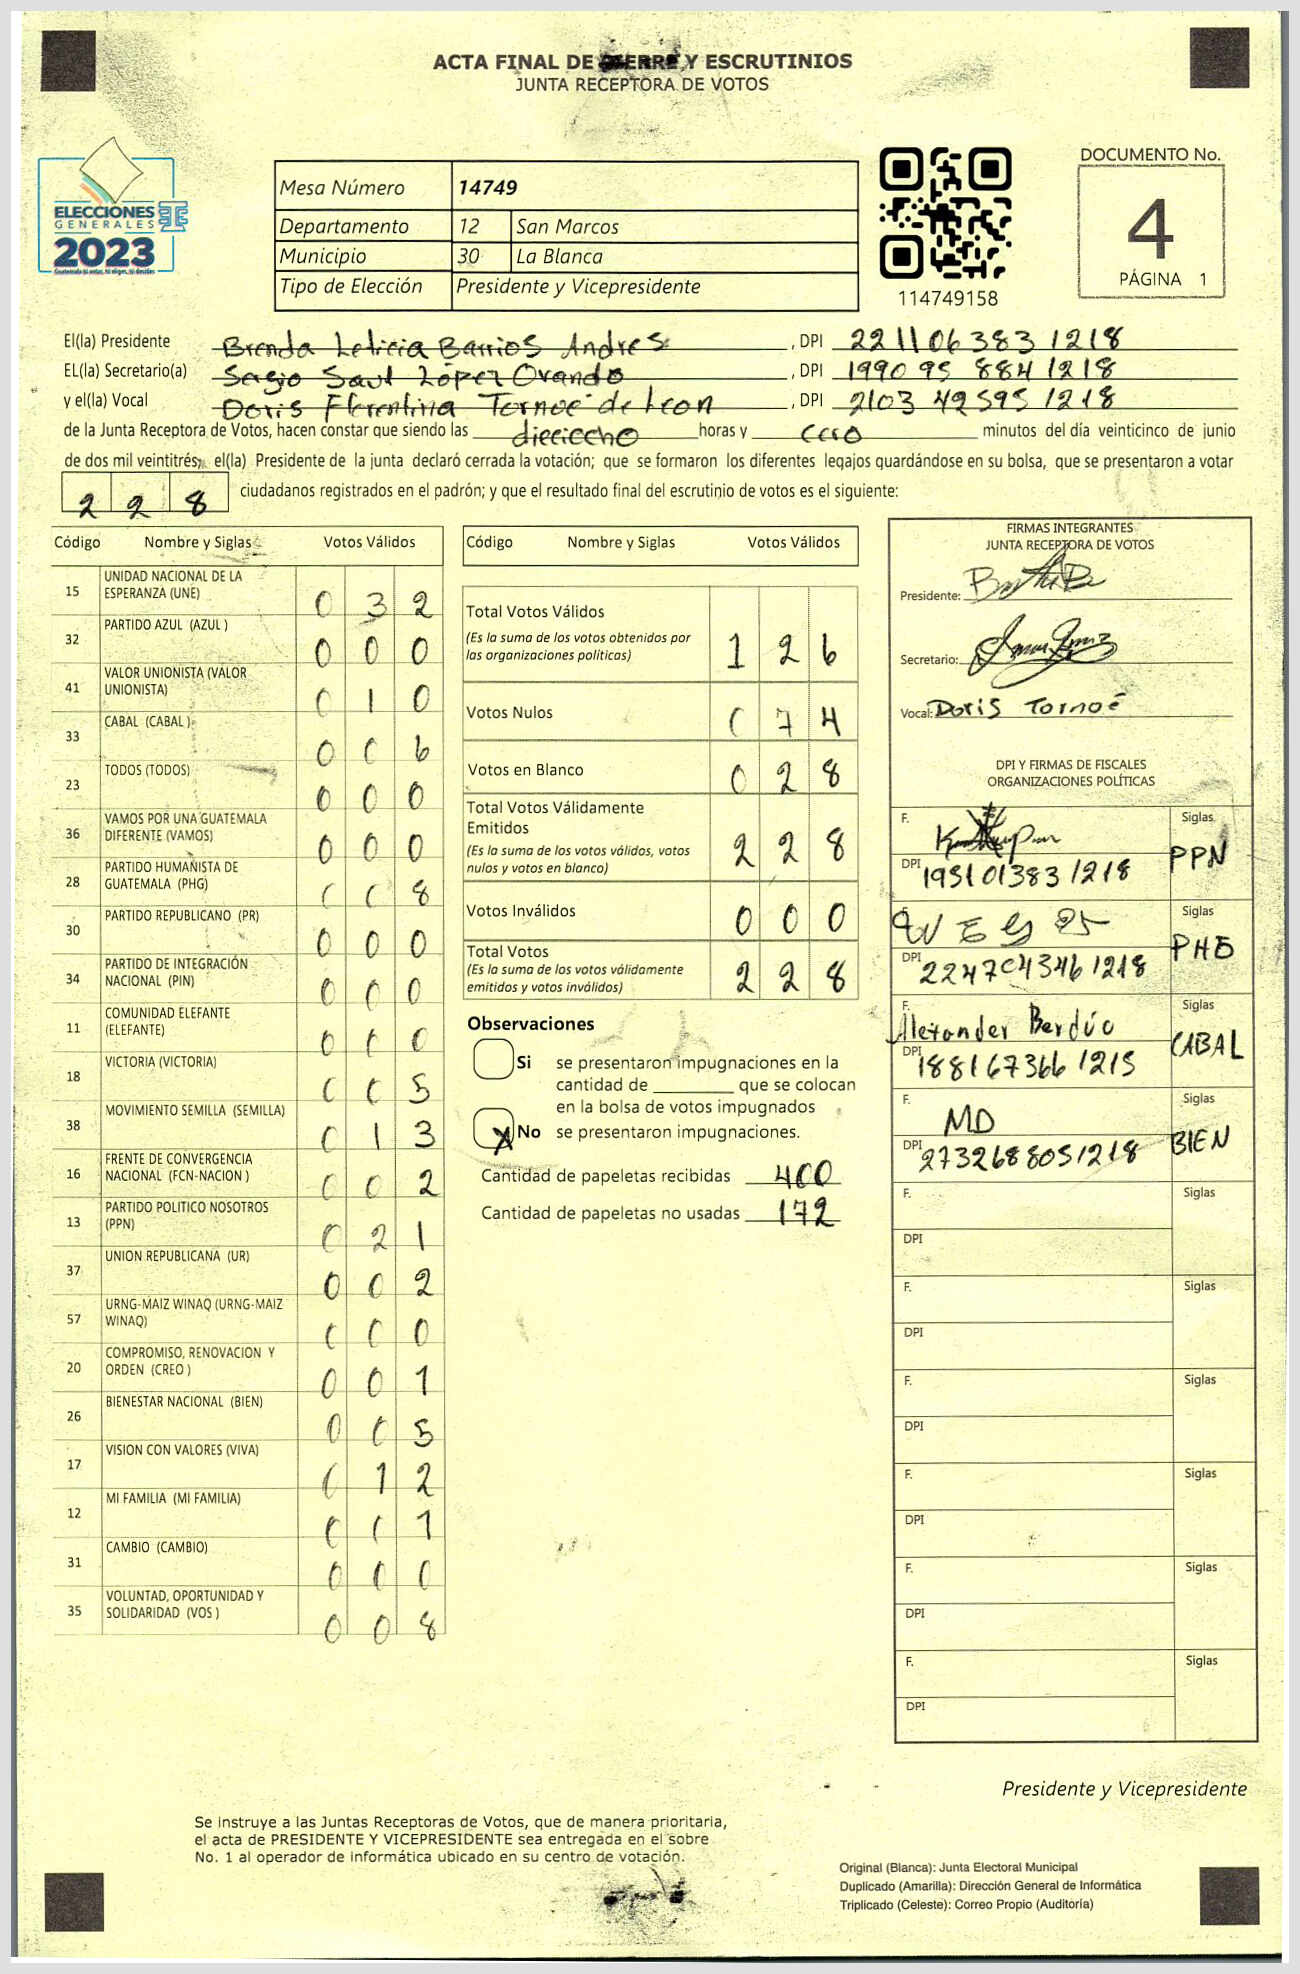 ACTA FINAL DE CIERRE Y ESCRUTINIOS
JUNTA RECEPTORA DE VOTOS
ELECCIONES
GENERALES
2023
Mesa Número 14749
Departamento 12 San Marcos
Municipio 30 La Blanca
Tipo de Elección Presidente y Vicepresidente
114749158
DOCUMENTO No.
4
PÁGINA 1
El(la) Presidente Brenda Leticia Barrios Andres, DPI 2211063831218
EL(la) Secretario(a) Sergio Saul López Ovando, DPI 1990958841218
y el(la) Vocal Doris Florentina Tornoé de Leon, DPI 2103425951218
de la Junta Receptora de Votos, hacen constar que siendo las dieciocho horas y cero minutos del día veinticinco de junio
de dos mil veintitrés; el(la) Presidente de la junta declaró cerrada la votación; que se formaron los diferentes legajos guardándose en su bolsa, que se presentaron a votar
228 ciudadanos registrados en el padrón; y que el resultado final del escrutinio de votos es el siguiente:
Código Nombre y Siglas Votos Válidos
15 UNIDAD NACIONAL DE LA ESPERANZA (UNE) 032
32 PARTIDO AZUL (AZUL ) 000
41 VALOR UNIONISTA (VALOR UNIONISTA) 010
33 CABAL (CABAL ) 006
23 TODOS (TODOS) 000
36 VAMOS POR UNA GUATEMALA DIFERENTE (VAMOS) 000
28 PARTIDO HUMANISTA DE GUATEMALA (PHG) 008
30 PARTIDO REPUBLICANO (PR) 000
34 PARTIDO DE INTEGRACIÓN NACIONAL (PIN) 000
11 COMUNIDAD ELEFANTE (ELEFANTE) 000
18 VICTORIA (VICTORIA) 005
38 MOVIMIENTO SEMILLA (SEMILLA) 013
16 FRENTE DE CONVERGENCIA NACIONAL (FCN-NACION ) 002
13 PARTIDO POLITICO NOSOTROS (PPN) 021
37 UNION REPUBLICANA (UR) 002
57 URNG-MAIZ WINAQ (URNG-MAIZ WINAQ) 000
20 COMPROMISO, RENOVACION Y ORDEN (CREO ) 001
26 BIENESTAR NACIONAL (BIEN) 005
17 VISION CON VALORES (VIVA) 012
12 MI FAMILIA (MI FAMILIA) 001
31 CAMBIO (CAMBIO) 000
35 VOLUNTAD, OPORTUNIDAD Y SOLIDARIDAD (VOS ) 008
Código Nombre y Siglas Votos Válidos
Total Votos Válidos 126
(Es la suma de los votos obtenidos por
las organizaciones políticas)
Votos Nulos 074
Votos en Blanco 028
Total Votos Válidamente
Emitidos 228
(Es la suma de los votos válidos, votos
nulos y votos en blanco)
Votos Inválidos 000
Total Votos 228
(Es la suma de los votos válidamente
emitidos y votos inválidos)
Observaciones
Si se presentaron impugnaciones en la
cantidad de ________ que se colocan
en la bolsa de votos impugnados
X No se presentaron impugnaciones.
Cantidad de papeletas recibidas 400
Cantidad de papeletas no usadas 172
FIRMAS INTEGRANTES
JUNTA RECEPTORA DE VOTOS
Presidente:
Secretario:
Vocal: Doris Tornoé
DPI Y FIRMAS DE FISCALES
ORGANIZACIONES POLÍTICAS
F. Siglas
DPI 1951013831218 PPN
F. Siglas
DPI 2247043461218 PHG
F. Alexander Berdúo Siglas
DPI 1881673661215 CABAL
F. MD Siglas
DPI 2732688051218 BIEN
F. Siglas
DPI
F. Siglas
DPI
F. Siglas
DPI
F. Siglas
DPI
F. Siglas
DPI
F. Siglas
DPI
Presidente y Vicepresidente
Se instruye a las Juntas Receptoras de Votos, que de manera prioritaria,
el acta de PRESIDENTE Y VICEPRESIDENTE sea entregada en el sobre
No. 1 al operador de informática ubicado en su centro de votación.
Original (Blanca): Junta Electoral Municipal
Duplicado (Amarilla): Dirección General de Informática
Triplicado (Celeste): Correo Propio (Auditoría)